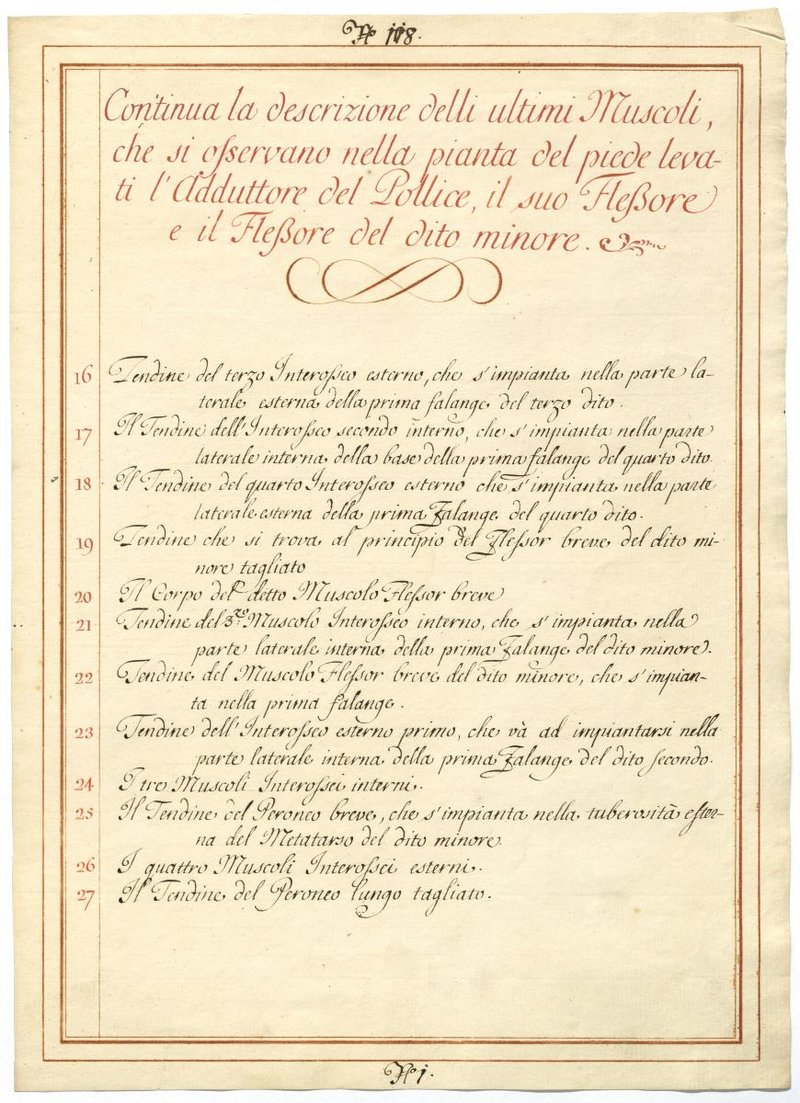 № 118.
Continua la descrizione delli ultimi Muscoli,
che si oſservano nella pianta del piede leva-
ti l'Adduttore del Pollice, il suo Fleßore
e il Fleßore del dito minore.
16 Tendine del terzo Interoſseo esterno, che s'impianta nella parte la-
terale esterna della prima falange del terzo dito.
17 Il Tendine dell'Interoſseo secondo interno, che s'impianta nella parte
laterale interna della base della prima falange del quarto dito.
18 Il Tendine del quarto Interoſseo esterno che s'impianta nella parte
laterale esterna della prima Falange del quarto dito.
19 Tendine che si trova al principio del Fleſsor breve del dito mi-
nore tagliato
20 Il Corpo del detto Muscolo Fleſsor breve
21 Tendine del 3.zo Muscolo Interoſseo interno, che s'impianta nella
parte laterale interna della prima Falange del dito minore.
22 Tendine del Muscolo Fleſsor breve del dito minore, che s'impian-
ta nella prima falange.
23 Tendine dell'Interoſseo esterno primo, che và ad impiantarsi nella
parte laterale interna della prima Falange del dito ſecondo.
24 I tre Muscoli Interoſsei interni.
25 Il Tendine del Peroneo breve, che s'impianta nella tuberosità ester-
na del Metatarso del dito minore.
26 I quattro Muscoli Interoſsei esterni.
27 Il Tendine del Peroneo lungo tagliato.
№ 1.